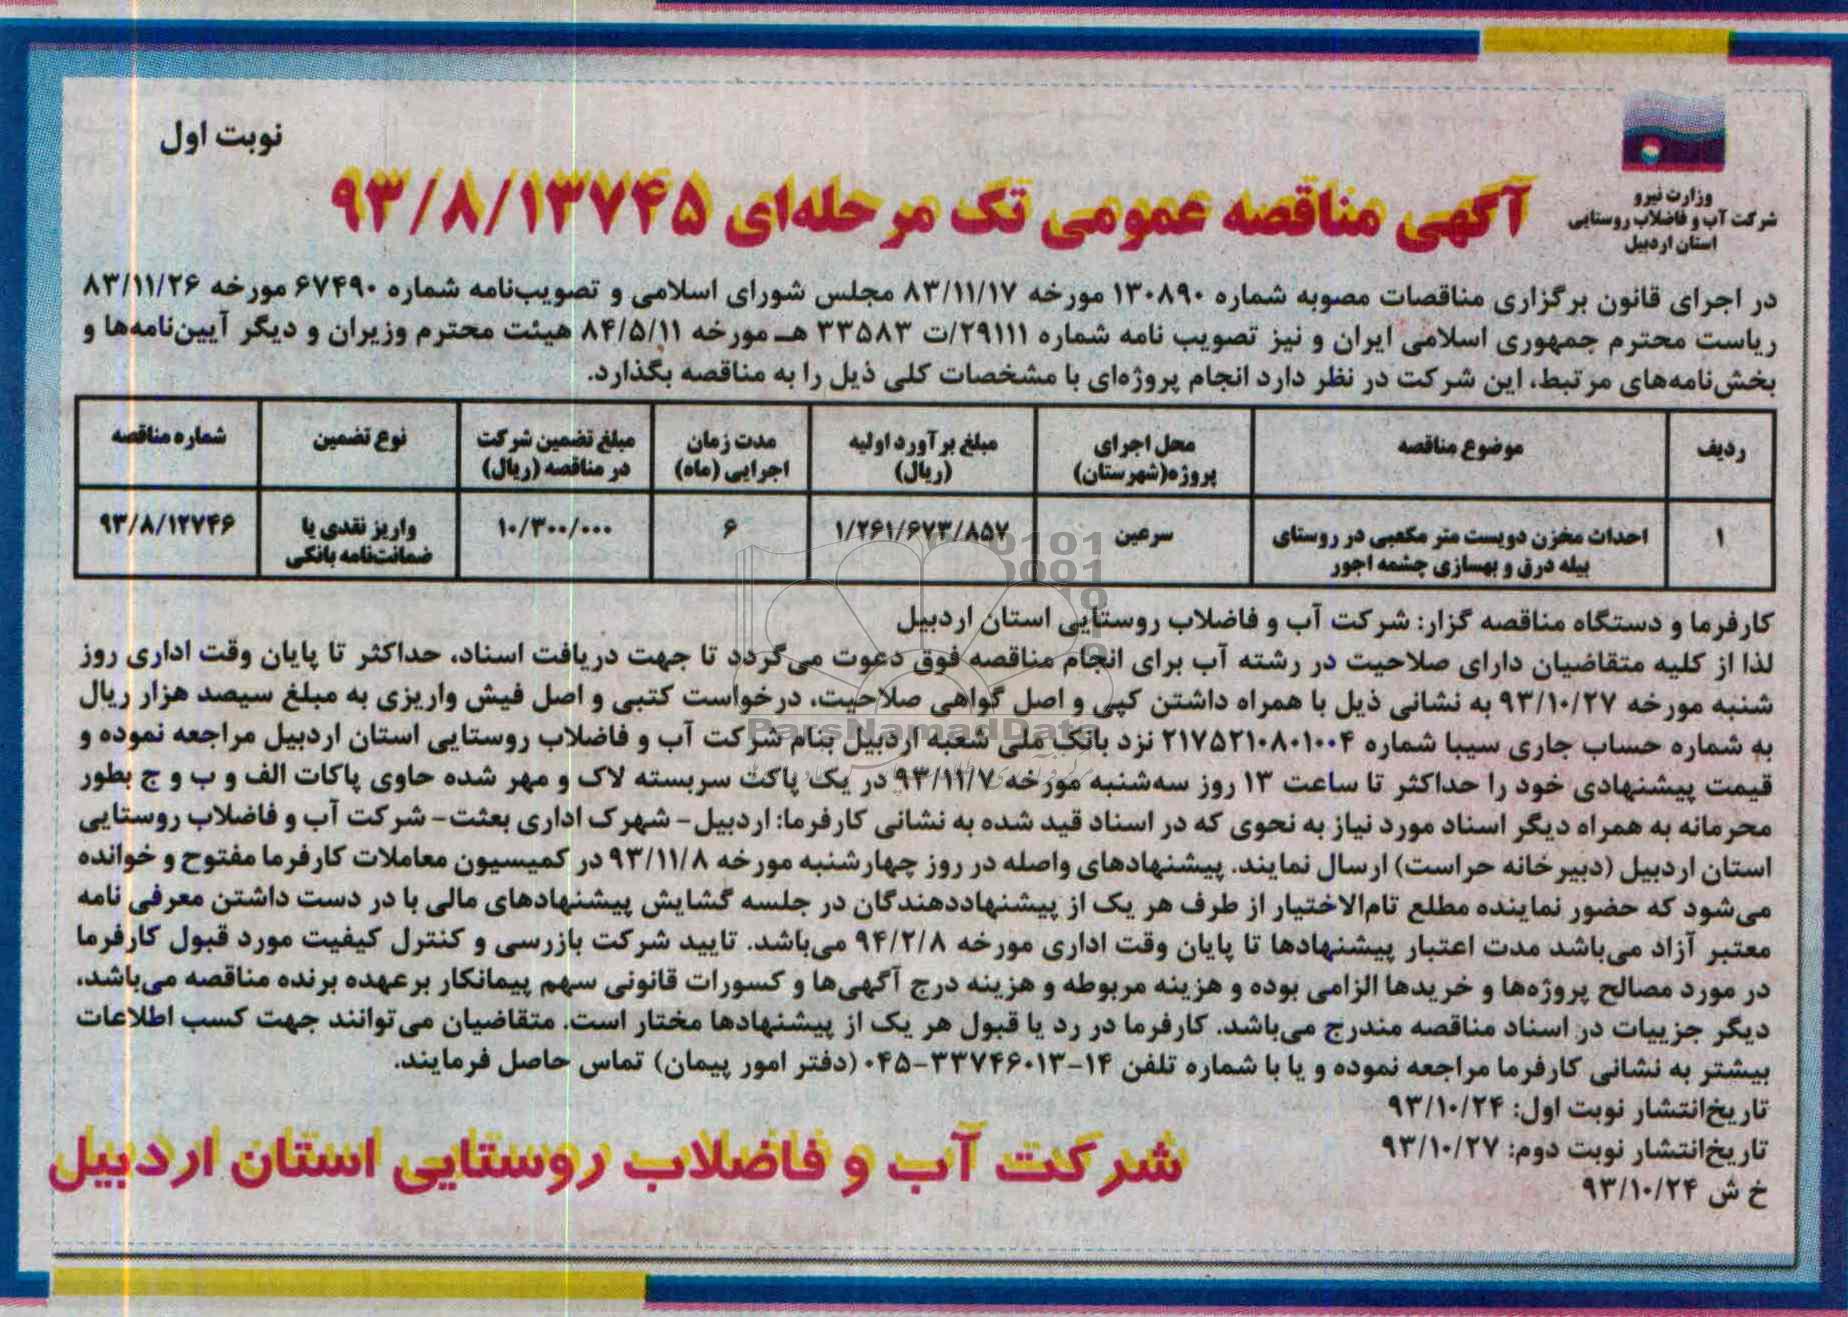 نوبت اول
وزارت نیرو
شرکت آب و فاضلاب روستایی
استان اردبیل
آگهی مناقصه عمومی تک مرحله‌ای ۹۳/۸/۱۳۷۴۵
در اجرای قانون برگزاری مناقصات مصوبه شماره ۱۳۰۸۹۰ مورخه ۸۳/۱۱/۱۷ مجلس شورای اسلامی و تصویب‌نامه شماره ۶۷۴۹۰ مورخه ۸۳/۱۱/۲۶
ریاست محترم جمهوری اسلامی ایران و نیز تصویب نامه شماره ۲۹۱۱۱/ت ۳۳۵۸۳ هـ مورخه ۸۴/۵/۱۱ هیئت محترم وزیران و دیگر آیین‌نامه‌ها و
بخش‌نامه‌های مرتبط، این شرکت در نظر دارد انجام پروژه‌ای با مشخصات کلی ذیل را به مناقصه بگذارد.
ردیف موضوع مناقصه محل اجرای پروژه(شهرستان) مبلغ برآورد اولیه (ریال) مدت زمان اجرایی (ماه) مبلغ تضمین شرکت در مناقصه (ریال) نوع تضمین شماره مناقصه
۱ احداث مخزن دویست متر مکعبی در روستای بیله درق و بهسازی چشمه اجور سرعین ۱/۲۶۱/۶۷۳/۸۵۷ ۶ ۱۰/۳۰۰/۰۰۰ واریز نقدی یا ضمانت‌نامه بانکی ۹۳/۸/۱۲۷۴۶
کارفرما و دستگاه مناقصه گزار: شرکت آب و فاضلاب روستایی استان اردبیل
لذا از کلیه متقاضیان دارای صلاحیت در رشته آب برای انجام مناقصه فوق دعوت می‌گردد تا جهت دریافت اسناد، حداکثر تا پایان وقت اداری روز
شنبه مورخه ۹۳/۱۰/۲۷ به نشانی ذیل با همراه داشتن کپی و اصل گواهی صلاحیت، درخواست کتبی و اصل فیش واریزی به مبلغ سیصد هزار ریال
به شماره حساب جاری سیبا شماره ۲۱۷۵۲۱۰۸۰۱۰۰۴ نزد بانک ملی شعبه اردبیل بنام شرکت آب و فاضلاب روستایی استان اردبیل مراجعه نموده و
قیمت پیشنهادی خود را حداکثر تا ساعت ۱۳ روز سه‌شنبه مورخه ۹۳/۱۱/۷ در یک پاکت سربسته لاک و مهر شده حاوی پاکات الف و ب و ج بطور
محرمانه به همراه دیگر اسناد مورد نیاز به نحوی که در اسناد قید شده به نشانی کارفرما: اردبیل- شهرک اداری بعثت- شرکت آب و فاضلاب روستایی
استان اردبیل (دبیرخانه حراست) ارسال نمایند. پیشنهادهای واصله در روز چهارشنبه مورخه ۹۳/۱۱/۸ در کمیسیون معاملات کارفرما مفتوح و خوانده
می‌شود که حضور نماینده مطلع تام‌الاختیار از طرف هر یک از پیشنهاددهندگان در جلسه گشایش پیشنهادهای مالی با در دست داشتن معرفی نامه
معتبر آزاد می‌باشد مدت اعتبار پیشنهادها تا پایان وقت اداری مورخه ۹۴/۲/۸ می‌باشد. تایید شرکت بازرسی و کنترل کیفیت مورد قبول کارفرما
در مورد مصالح پروژه‌ها و خریدها الزامی بوده و هزینه مربوطه و هزینه درج آگهی‌ها و کسورات قانونی سهم پیمانکار برعهده برنده مناقصه می‌باشد،
دیگر جزییات در اسناد مناقصه مندرج می‌باشد. کارفرما در رد یا قبول هر یک از پیشنهادها مختار است. متقاضیان می‌توانند جهت کسب اطلاعات
بیشتر به نشانی کارفرما مراجعه نموده و یا با شماره تلفن ۱۴-۳۳۷۴۶۰۱۳-۰۴۵ (دفتر امور پیمان) تماس حاصل فرمایند.
تاریخ‌انتشار نوبت اول: ۹۳/۱۰/۲۴
تاریخ‌انتشار نوبت دوم: ۹۳/۱۰/۲۷
خ ش ۹۳/۱۰/۲۴
شرکت آب و فاضلاب روستایی استان اردبیل
ParsNamadData